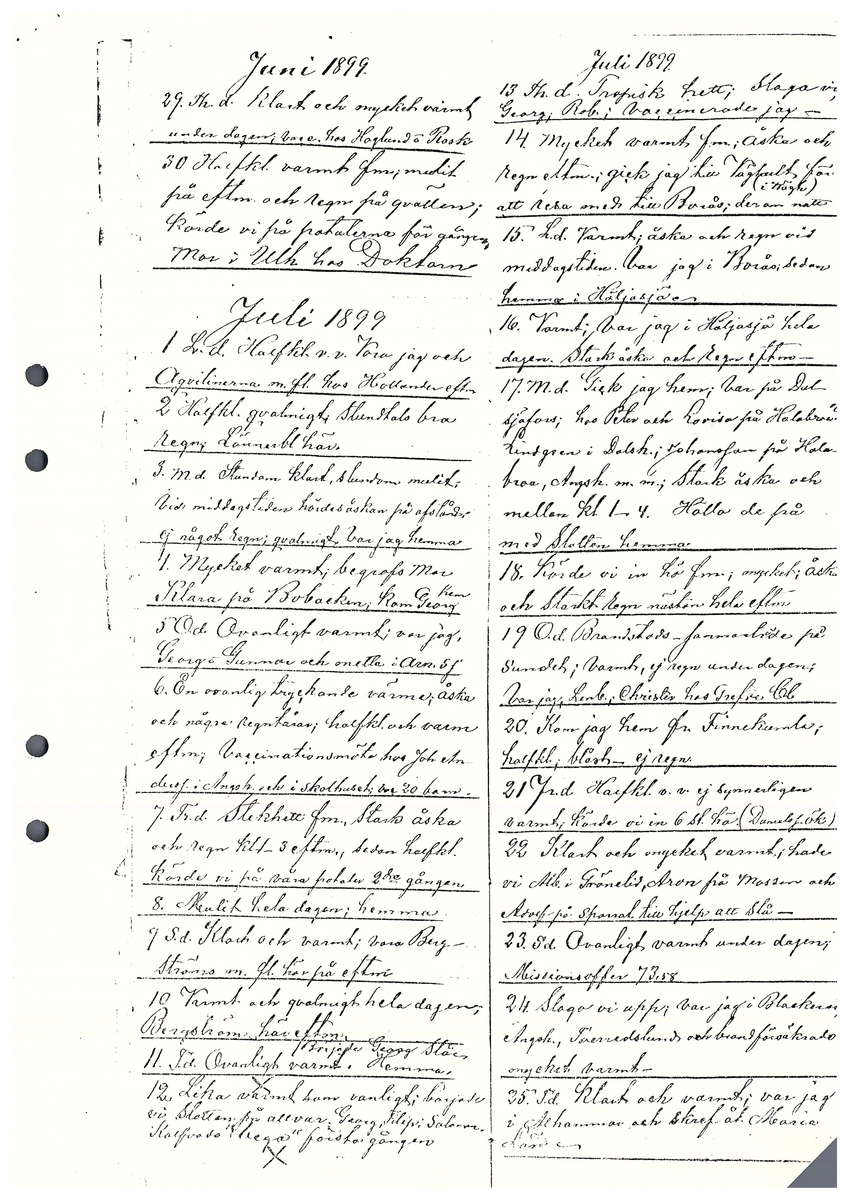 Juni 1899.
29. Th.d. Klart och mycket varmt
under dagen; voro hos Haglund o Rask
30 Halfkl. varmt fm; mulit
på eftm. och regn på qvällen;
Körde vi på potaterna för gången
Mor i Ulh hos Doktorn
Juli 1899
1 L.d. Halfkl. v.v. Voro jag och
Aqvilinerna m.fl. hos Hollander eftm
2 Halfkl. qvalmigt; Stundtals bra
regn; Lönnerbl här.
3. M.d. Stundom klart, stundom mulit;
Vid middagstiden hördes åskan på afstånd
ej något regn; qvalmigt. Var jag hemma
4. Mycket varmt; begrofs Mor
Klara på Bobacken; kom Georg hem
5 O.d. Ovanligt varmt; var jag,
Georg o Gunnar och metta i Arn. sj
6. En ovanlig tryckande värme; åska
och några regntårar; halfkl. och varm
eftm; Vaccinationsmöte hos Joh. An
derss. i Ängsh. och i skolhuset; var 20 barn.
7. Fr.d. Stekhett fm., Stark åska
och regn kl 1-3 eftm., sedan halfkl.
Körde vi på våra potater 2dra gången
8. Mulit hela dagen; hemma
9 S.d. Klart och varmt; voro Berg-
ströms m.fl. här på eftm
10 Varmt och qvalmigt hela dagen;
Bergström här eftm.
Började Georg Slå
11. T.d. Ovanligt varmt. Hemma.
12. Lika varmt som vanligt; började
vi Slotten på allvar. Georg, Filip; Salomo.
Kalfvado "Vega" första gången
X
Juli 1899.
13 Th.d. Tropisk hett; Slogo vi,
Georg, Rob.; Vaccinerade jag —
14 Mycket varmt fm; åska och
regn eftm.; gick jag till Väghult för
(i Högh)
att resa med till Borås; der om natt
15. L.d. Varmt; åska och regn vid
middagstiden. Var jag i Borås; sedan
hemma i Häljasjö
16. Varmt; Var jag i Häljasjö hela
dagen. Stark åska och regn eftm —
17. M.d. Gick jag hem; Var på Dal-
sjöfors; hos Peter och Lovisa på Halabron
Lindgren i Dalsh.; Johansson på Hala-
broa, Ängsh. m.m; Stark åska och
mellan kl 1-4. Hålla de på
med Slotten hemma
18. Körde vi in hö fm; mycket; åska
och Starkt regn nästan hela eftm
19 O.d. Brandstods-sammanträde på
Sundet; Varmt, ej regn under dagen;
Var jag, Lenb., Christin hos
20. Kom jag hem fr. Finnekumla;
halfkl; blåst — ej regn.
21 Fr.d Halfkl. v.v. ej synnerligen
varmt; körde vi in 6 st. hö. (Danielsp. ök)
22 Klart och mycket varmt; hade
vi Alb. i Grönelid, Aron på Mossen och
Adolf på Sporral till hjelp att Slå —
23. S.d. Ovanligt varmt under dagen;
Missionsoffer 73,58
24. Slogo vi upp; var jag i Blackered,
Ängsh., Tverredslund och brandförsäkrade
mycket varmt —
25. T.d. Klart och varmt; var jag
i Alhammar och skref åt Maria